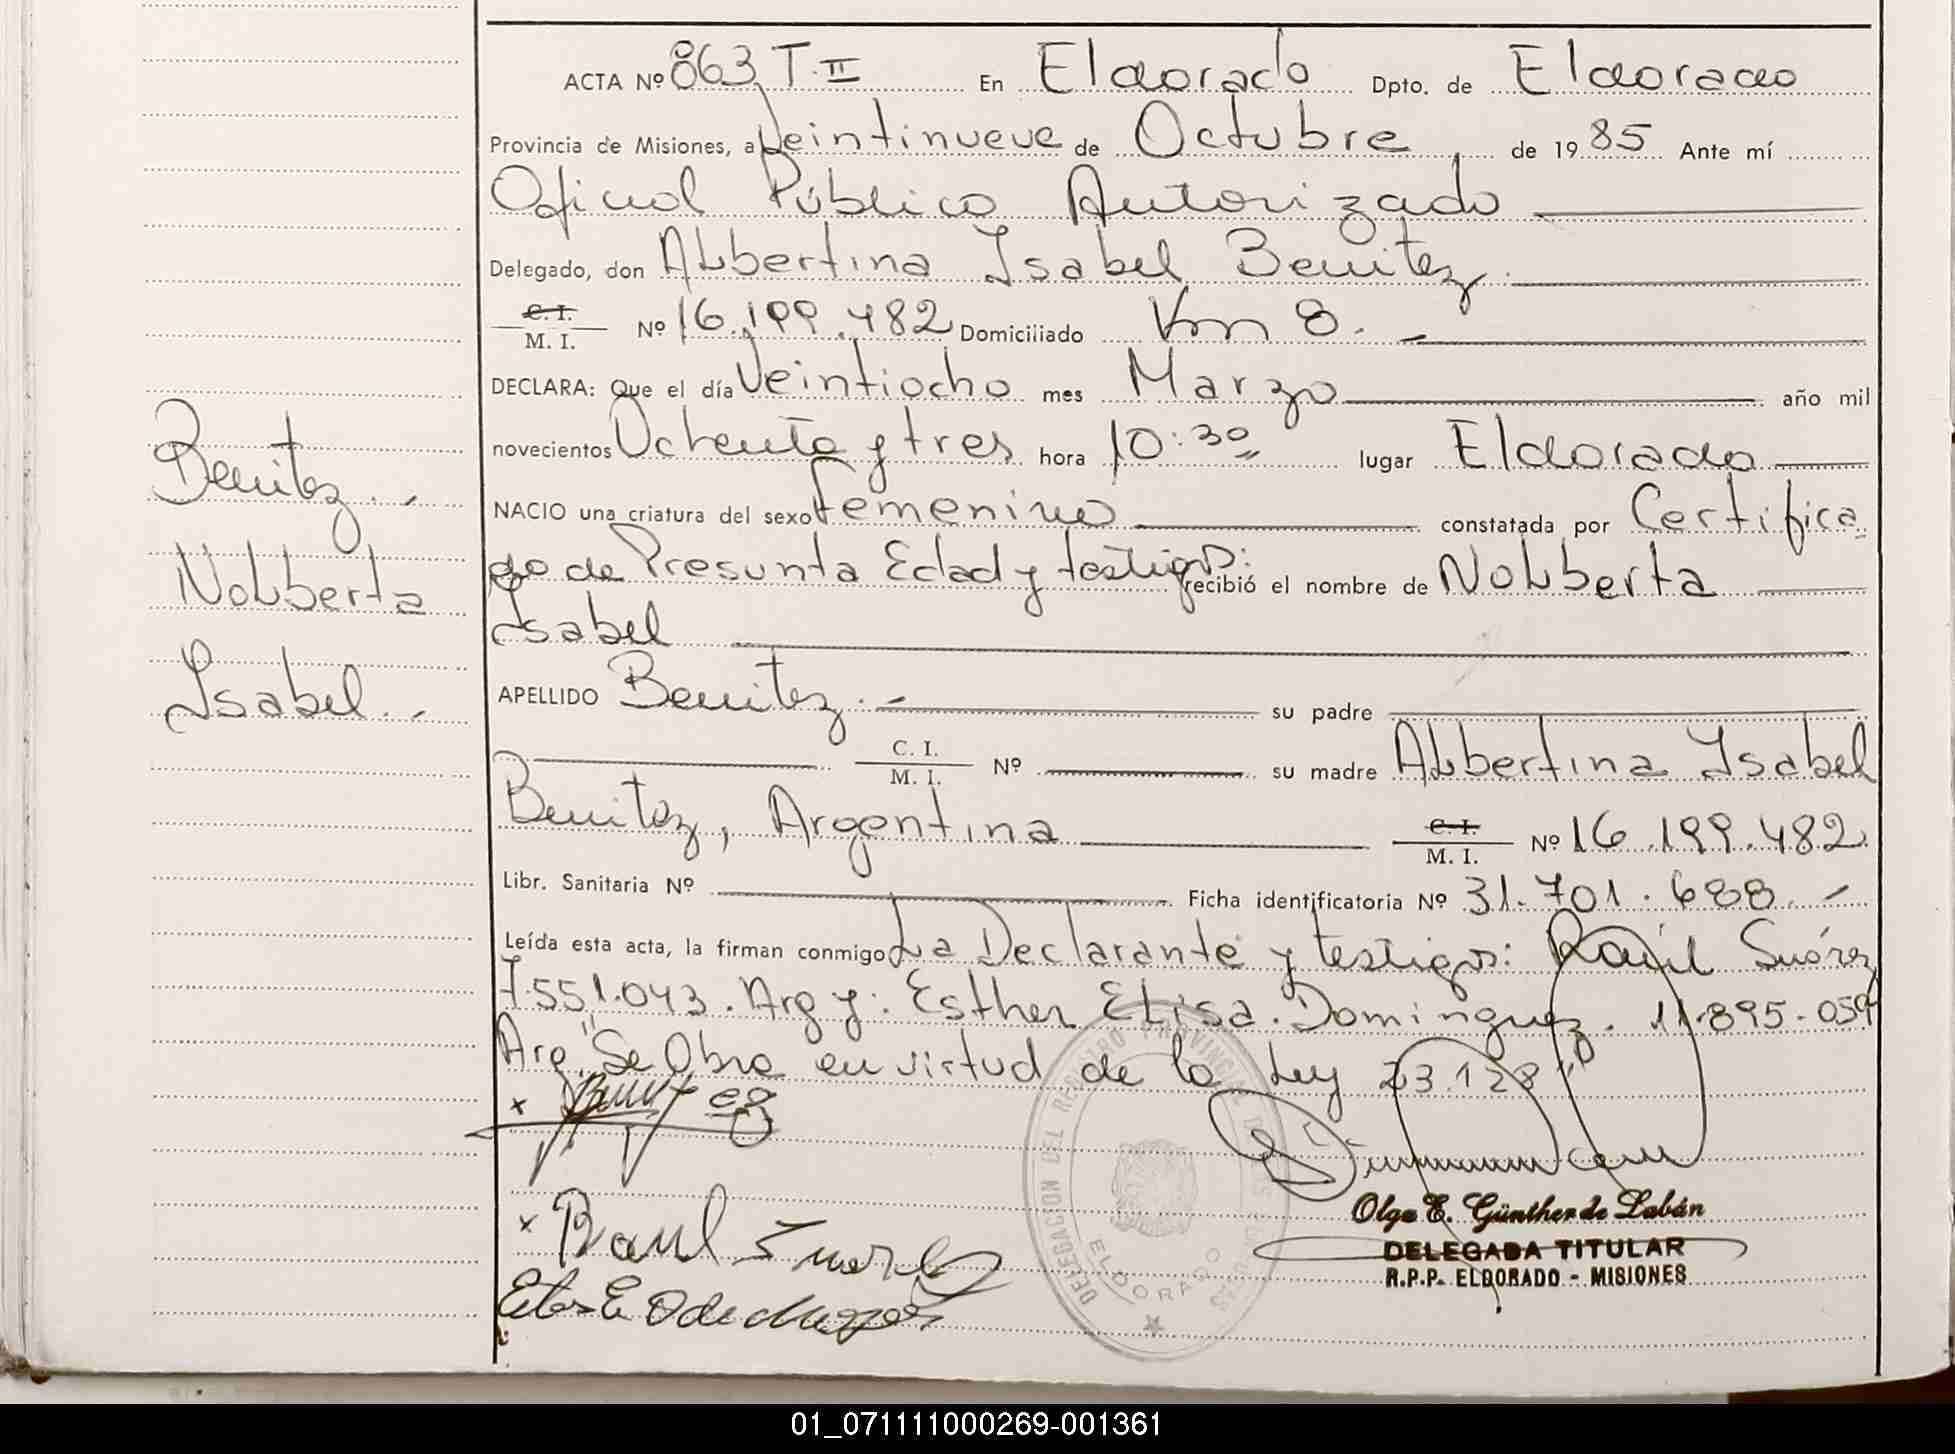 ACTA Nº 863 T. II En Eldorado Dpto. de Eldorado
Provincia de Misiones, a Veintinueve de Octubre, de 1985 Ante mí
Oficial Público Autorizado
Delegado, don Albbertina Isabel Benitez.
C. I.
M. I. Nº 16.199.482 Domiciliado Km 8. -
DECLARA: Que el día Veintiocho mes Marzo año mil
novecientos Ochenta y tres hora 10:30 lugar Eldorado
NACIO una criatura del sexo femenino constatada por Certifica
do de Presunta Edad y testigos: recibió el nombre de Nolbberta
Isabel
APELLIDO Benitez. - su padre
C. I.
M. I. Nº su madre Albbertina Isabel
Benitez, Argentina C. I.
M. I. Nº 16.199.482.
Libr. Sanitaria Nº Ficha identificatoria Nº 31.701.688. -
Leída esta acta, la firman conmigo La Declarante y testigos: Raúl Suárez
7.551.043. Arg y: Esther Elisa. Dominguez. 11.895.059
Arg. "Se Obra en virtud de la Ley 23.128"
Benitez. -
Nolbberta
Isabel. -
x Benitez
x Raul Suarez
DELEGACION DEL REGISTRO PROVINCIAL DE LAS PERSONAS
ELDORADO
Olga E. Günther de Labán
DELEGADA TITULAR
R.P.P. ELDORADO - MISIONES
01_071111000269-001361